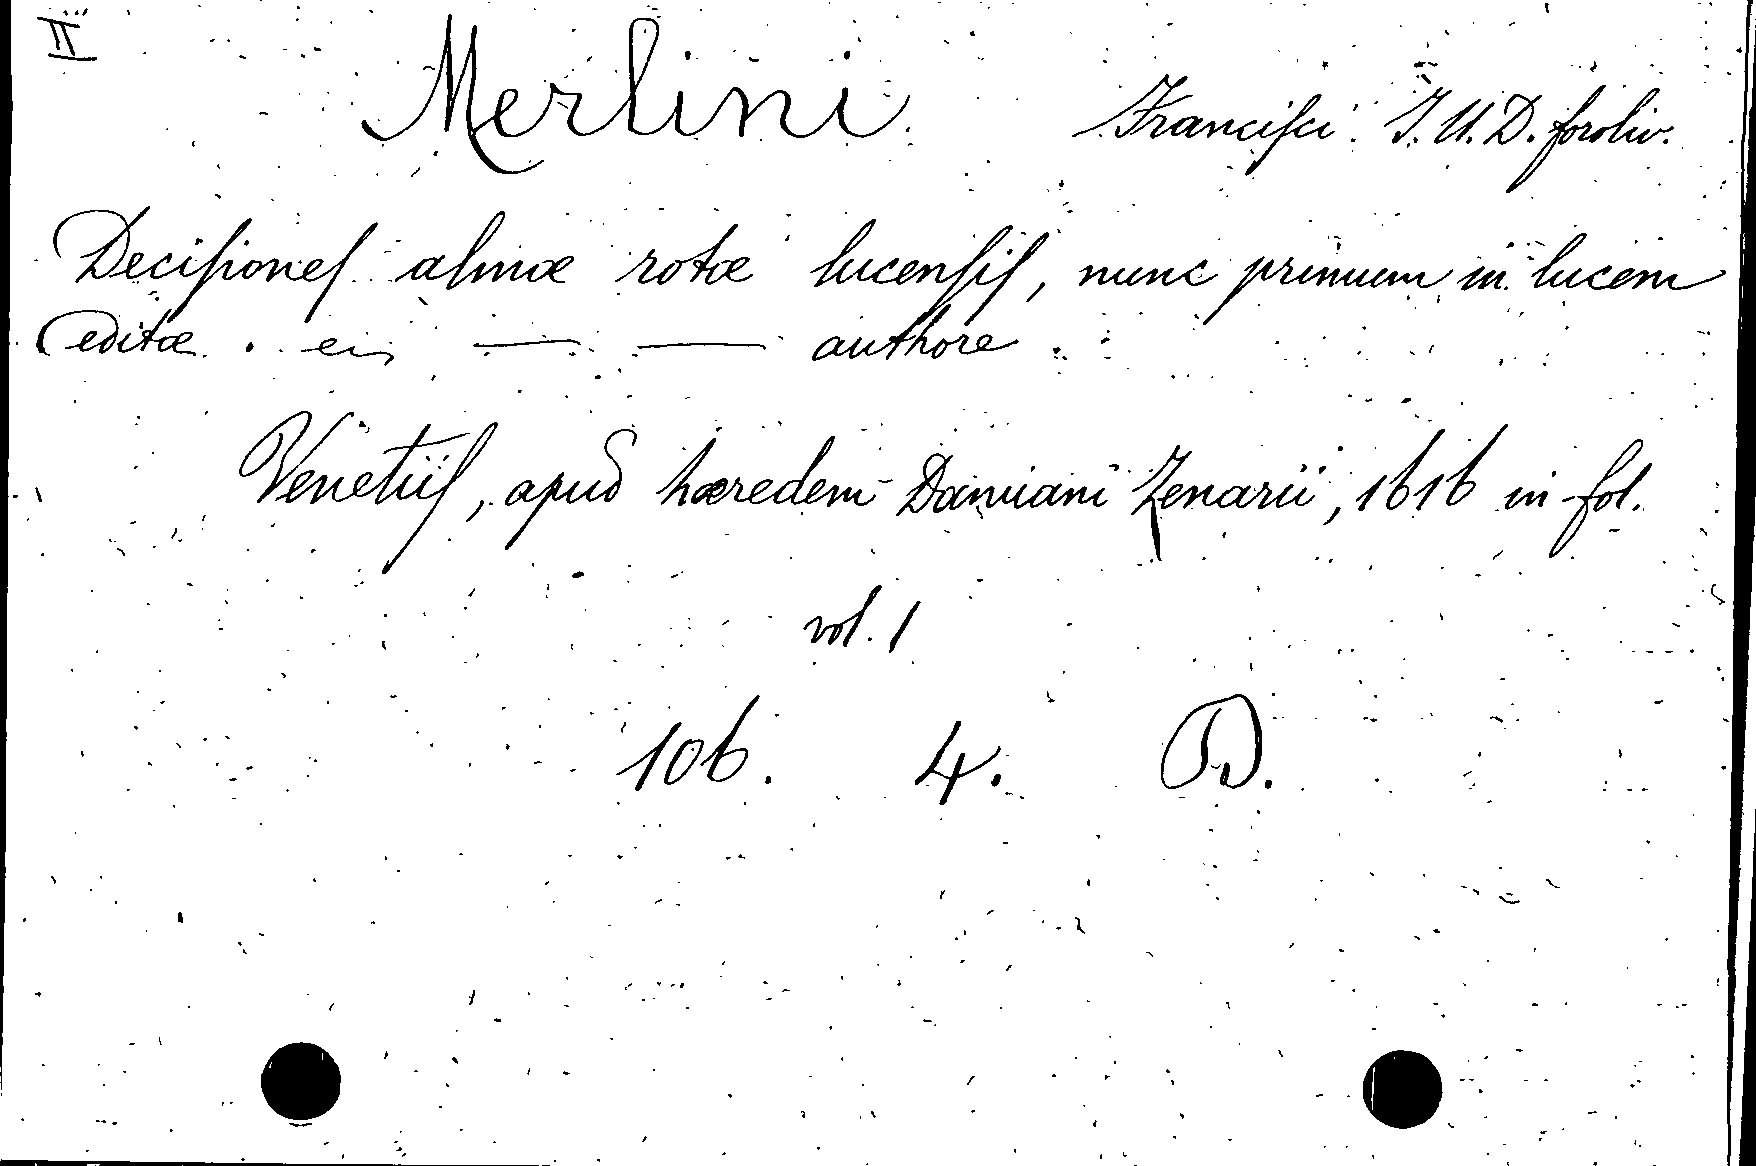 II
Merlini Franciſci J. U. D. foroliv.
Deciſioneſ almæ rotæ lucenſiſ, nunc primum in lucem
editæ . — — authore
Venetiiſ, apud hæredem Damiani Zenarii, 1616 in fol.
vol. 1
106. 4. D.